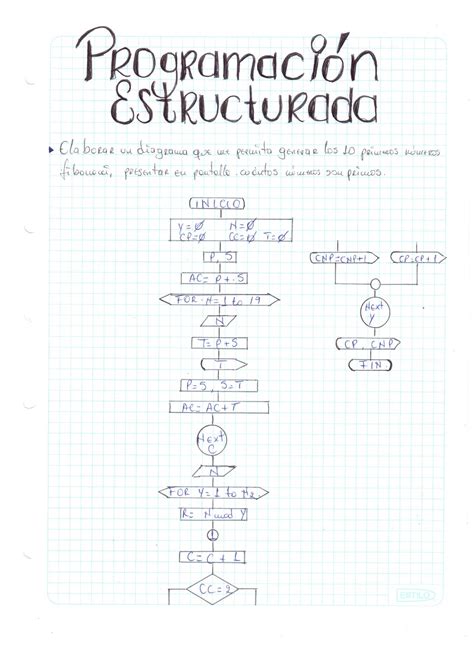 PROGRAMACIÓN
ESTRUCTURADA
Elaborar un diagrama que me permita generar los 10 primeros números
fibonacci, presentar en pantalla cuántos números son primos.
INICIO
Y=Ø N=Ø
CP=Ø CC=Ø T=Ø
P, S
AC= P+S
FOR N=1 to 19
N
T= P+S
T
P=S, S=T
AC= AC+T
Next
C
N
FOR Y=1 to N2
R= N mod Y
1
C= C + 1
CC=2
CNP=CNP+1
CP=CP+1
Next
Y
CP, CNP
FIN